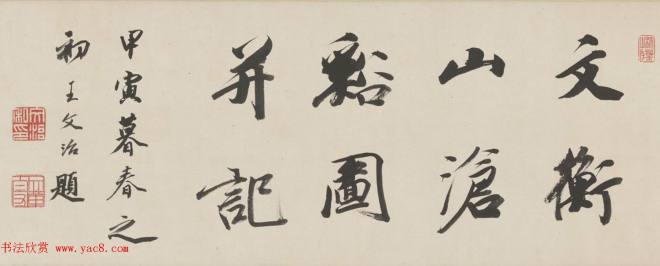 文衡
山滄
谿圖
并記
甲寅暮春之
初王文治題
书法欣赏 www.yac8.com